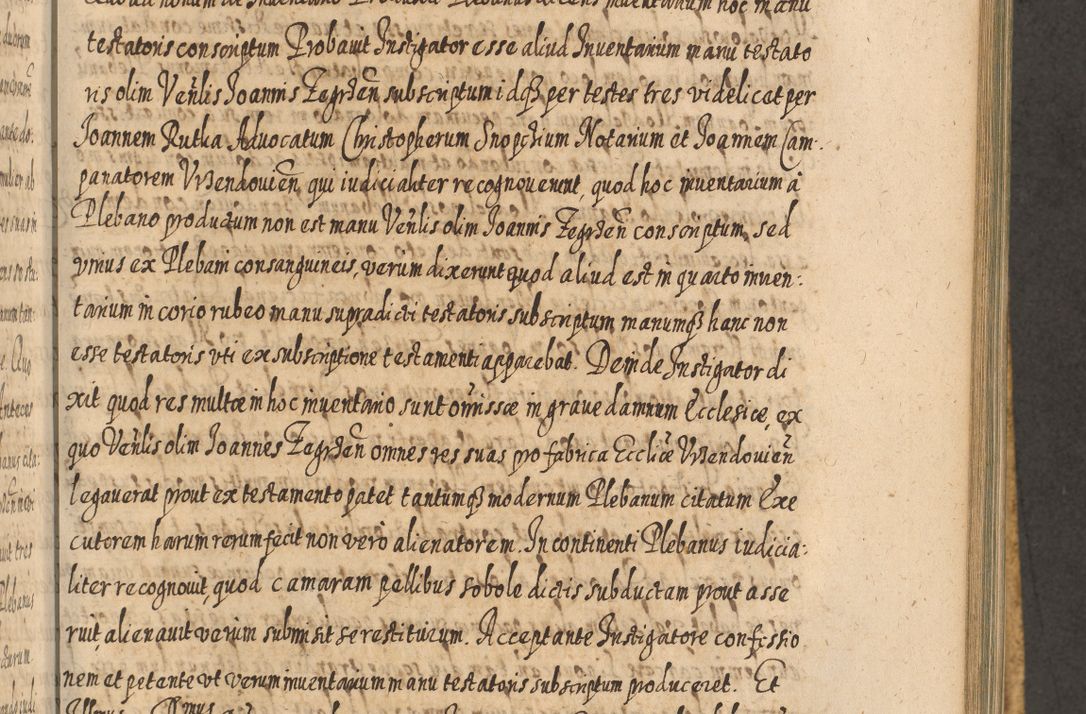 testatoris conscriptum Probauit Instigator esse aliud Inventarium manu testato
ris olim Veñlis Joannis Zegrzdeñ subscriptum idq3 per testes tres videlicet per
Joannem Rutka Aduocatum Christopherum Snopchium Notarium et Joannem Cam-
panatorem Wzendouieñ, qui iudicialiter recognouerunt, quod hoc inuentarium a
Plebano productum non est manu Veñlis olim Joannis Zegrzdeñ conscriptum, sed
vnius ex Plebani consanguineis, verum dixerunt quod aliud est in quarto inuen:
tarium in corio rubeo manu supradicti testatoris subscriptum manumq3 hanc non
esse testatoris vti ex subscriptione testamenti apparebat. Deinde Instigator di
xit quod res multæ in hoc inuentario sunt omissæ in graue damnum Ecclesiæ, ex
quo Veñlis olim Joannes Zegrzdeñ omnes res suas pro fabrica Eccliæ Wzendouieñ
legauerat prout ex testamento patet tantumq3 modernum Plebanum citatum Exe
cutorem harum rerum fecit non vero alienatorem. In continenti Plebanus iudicia:
liter recognouit, quod camaram pellibus sobole dictis subductam prout asse
ruit, alienauit verum submisit se restiturum. Acceptante Instigatore confessio
nem et petente vt verum inuentarium manu testatoris subscriptum produceret. Et